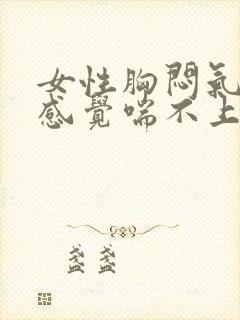 女性胸悶氣
感覺喘不上
盞盞